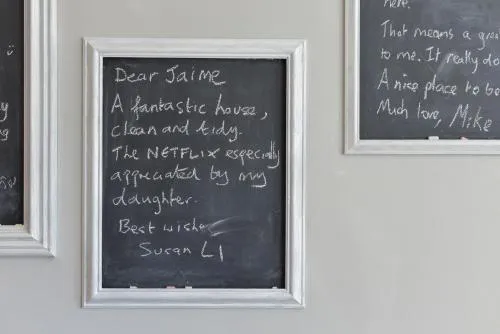 Dear Jaime
A fantastic house,
clean and tidy.
The NETFLIX especially
appreciated by my
daughter.
Best wishe
Susan LI
here.
That means a grea
to me. It really do
A nice place to be
Much love, Mike